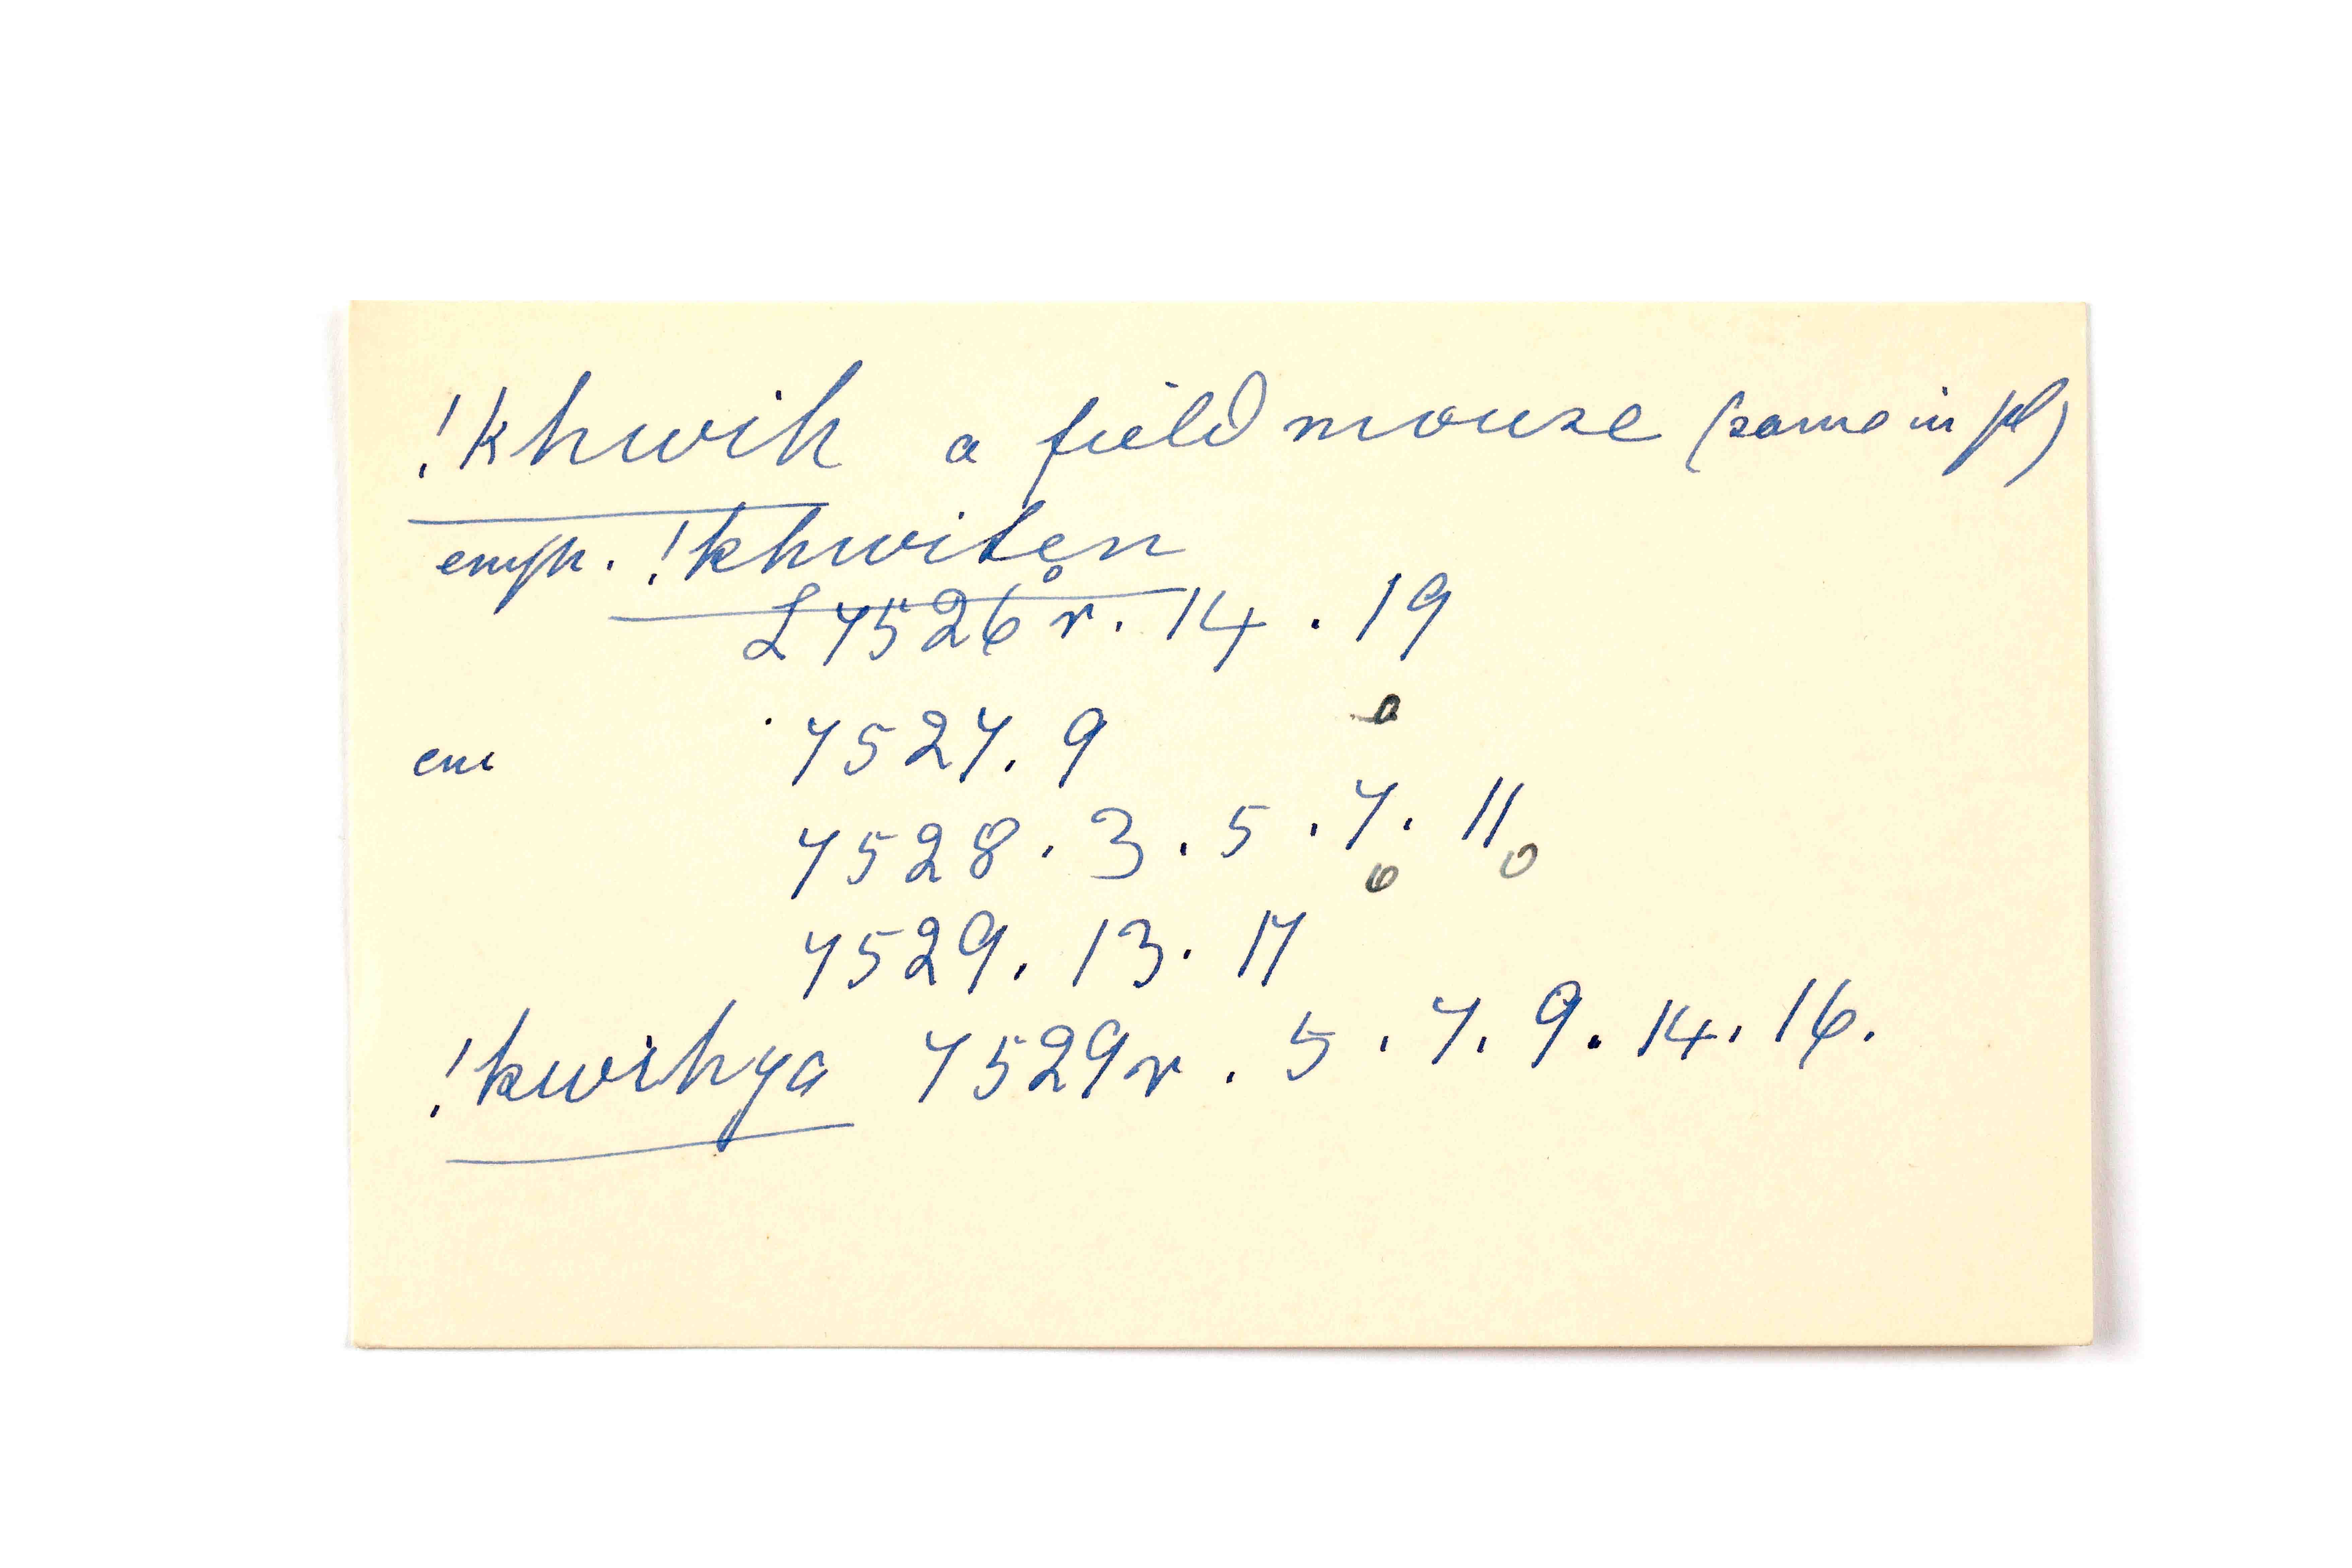 !khwih a field mouse (same in pl)
emph. !khwitẹn
£7526r. 14 . 19
7527. 9
em
7528 . 3 . 5 . 7 . 11
7529. 13. 17
!kwihya 7529r . 5 . 7. 9. 14. 16.